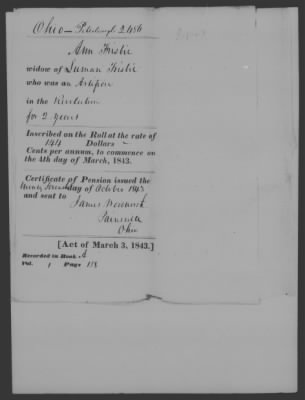 Ohio - 2486
Ann Kistie
widow of Luman Kistie
who was an Artificer
in the Revolution
for 2 years
Inscribed on the Roll at the rate of
144 Dollars -
Cents per annum, to commence on
the 4th day of March, 1843.
Certificate of Pension issued the
day of October 1843
and sent to
James
Painesville
Ohio
[Act of March 3, 1843.]
Recorded in Book A
Vol. 1 Page 158